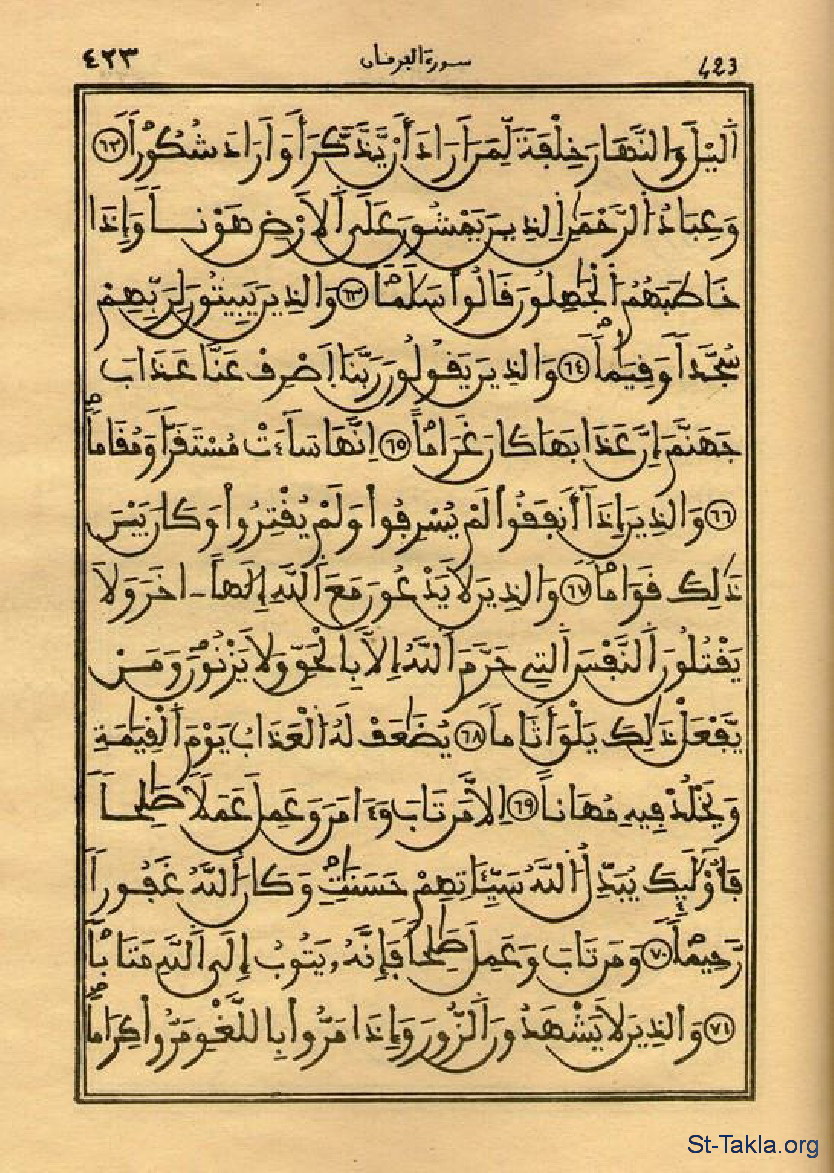 ٤٢٣ سورة الفرقان 423
اَ۬ليْلَ وَالنَّهَارَ خِلْفَةٗ لِّمَنَ اَرَادَ أَنْ يَّذَّكَّرَ أَوَ اَرَادَ شُكُوراٗ ٦٢
وَعِبَادُ اُ۬لرَّحْمَٰنِ اِ۬لذِينَ يَمْشُونَ عَلَى اَ۬لَارْضِ هَوْناٗ وَإِذَا
خَاطَبَهُمُ اُ۬لْجَٰهِلُونَ قَالُواْ سَلَٰماٗ ٦٣ وَالذِينَ يَبِيتُونَ لِرَبِّهِمْ
سُجَّداٗ وَقِيَٰماٗ ٦٤ وَالذِينَ يَقُولُونَ رَبَّنَا اَ۪صْرِفْ عَنَّا عَذَابَ
جَهَنَّمَ إِنَّ عَذَابَهَا كَانَ غَرَاماً ٦٥ اِنَّهَا سَآءَتْ مُسْتَقَرّاٗ وَمُقَاماٗ
٦٦ وَالذِينَ إِذَآ أَنفَقُواْ لَمْ يُسْرِفُواْ وَلَمْ يُقْتِرُواْ وَكَانَ بَيْنَ
ذَٰلِكَ قَوَاماٗ ٦٧ وَالذِينَ لَا يَدْعُونَ مَعَ اَ۬للَّهِ إِلَٰهاً اخَرَ وَلَا
يَقْتُلُونَ اَ۬لنَّفْسَ اَ۬لتِي حَرَّمَ اَ۬للَّهُ إِلَّا بِالْحَقِّ وَلَا يَزْنُونَ وَمَنْ
يَّفْعَلْ ذَٰلِكَ يَلْقَ أَثَاماٗ ٦٨ يُضَٰعَفْ لَهُ اُ۬لْعَذَابُ يَوْمَ اَ۬لْقِيَٰمَةِ
وَيَخْلُدْ فِيهِ مُهَاناً ٦٩ اِلَّا مَن تَابَ وَءَامَنَ وَعَمِلَ عَمَلاٗ صَٰلِحاٗ
فَأُوْلَٰٓئِكَ يُبَدِّلُ اُ۬للَّهُ سَيِّـَٔاتِهِمْ حَسَنَٰتٖ وَكَانَ اَ۬للَّهُ غَفُوراٗ
رَّحِيماٗ ٧٠ وَمَن تَابَ وَعَمِلَ صَٰلِحاٗ فَإِنَّهُۥ يَتُوبُ إِلَى اَ۬للَّهِ مَتَاباٗ
٧١ وَالذِينَ لَا يَشْهَدُونَ اَ۬لزُّورَ وَإِذَا مَرُّواْ بِاللَّغْوِ مَرُّواْ كِرَاماٗ
St-Takla.org